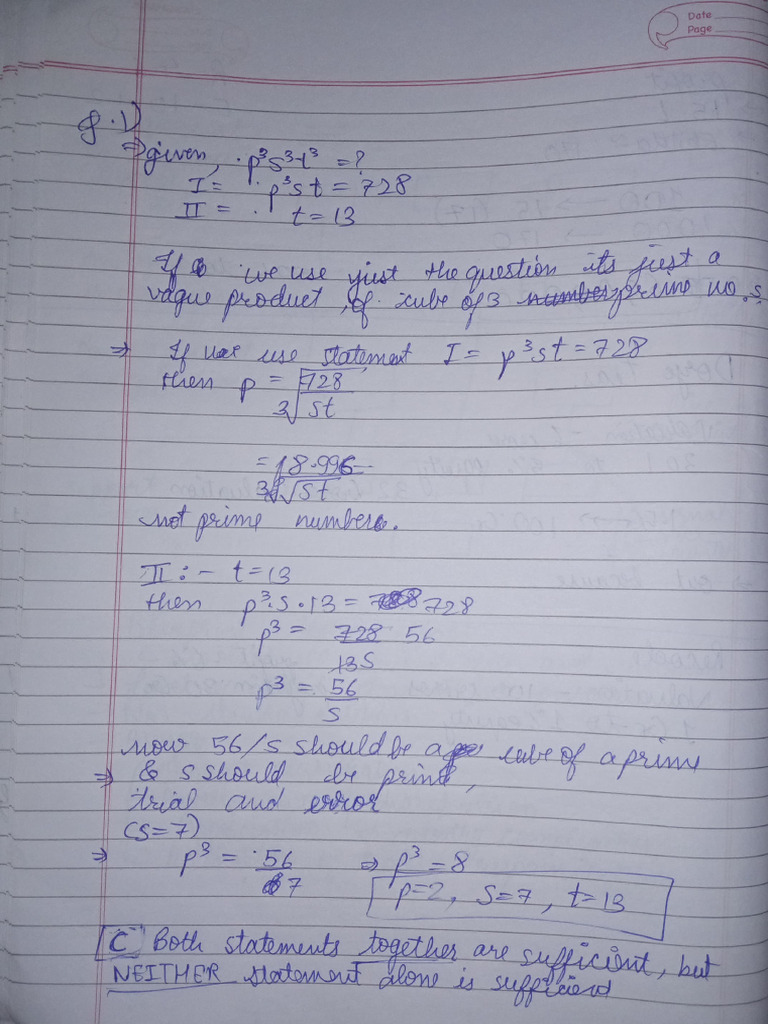 Date
Page
Q.1)
⇒ given, p³s³t³ = ?
I = p³st = 728
II = t = 13
If we use just the question its just a
vague product, of cube of 3 prime no.s
⇒ If we use statement I = p³st = 728
then p = ∛(728/st)
= 8.996/∛st
not prime number.
II :- t = 13
then p³·s·13 = 728
p³ = 728 56
13s
p³ = 56
s
now 56/s should be a cube of a prime
⇒ & s should be prime,
trial and error
(s=7)
⇒ p³ = 56 ⇒ p³ = 8
7
p=2, s=7, t=13
C Both statements together are sufficient, but
NEITHER statement alone is sufficient